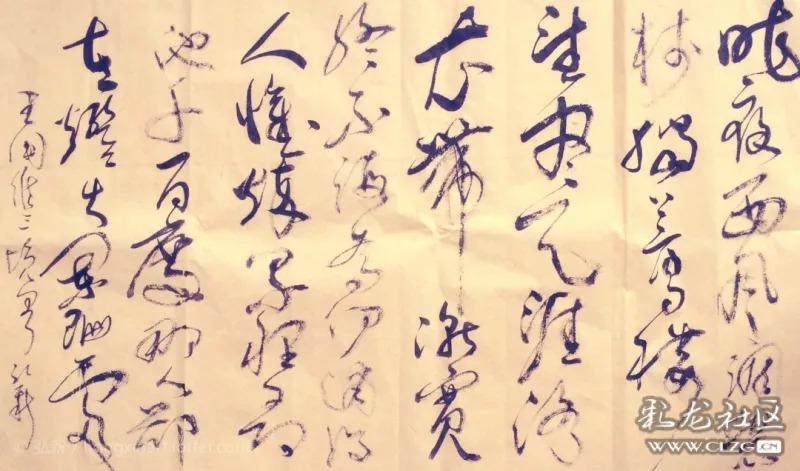 昨夜西风凋碧
树独上高楼
望尽天涯路
衣带渐宽
终不悔为伊消得
人憔悴众里寻
他千百度那人却
在灯火阑珊处
王国维三境界
彩龙社区
WWW.CLZG.CN